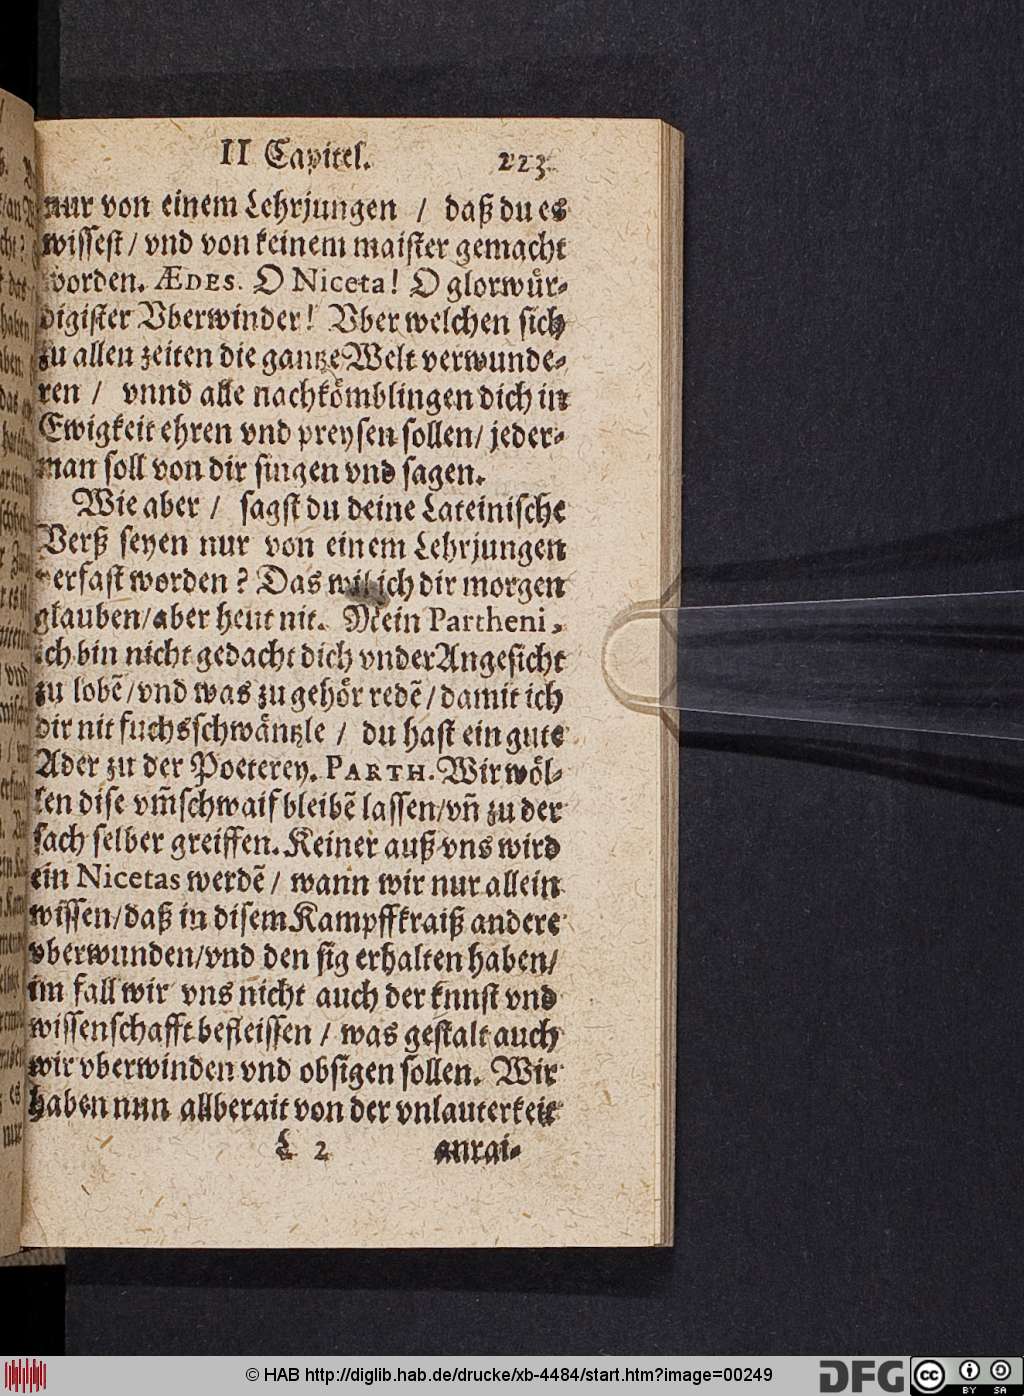 II Capitel. 223
nur von einem Lehrjungen / daß du es
wissest / vnd von keinem maister gemacht
worden. ÆDES. O Niceta! O glorwuͤr-
digister Vberwinder! Vber welchen sich
zu allen zeiten die gantze Welt verwunde-
ren / vnnd alle nachkoͤmblingen dich in
Ewigkeit ehren vnd preysen sollen / jeder-
man soll von dir singen vnd sagen.
Wie aber / sagst du deine Lateinische
Verß seyen nur von einem Lehrjungen
verfast worden? Das wil ich dir morgen
glauben / aber heut nit. Mein Partheni,
ich bin nicht gedacht dich vnder Angesicht
zu lobẽ / vnd was zu gehoͤr redẽ / damit ich
dir nit fuchsschwaͤntzle / du hast ein gute
Ader zu der Poeterey. PARTH. Wir woͤl-
len dise vm̃schwaif bleibẽ lassen / vñ zu der
sach selber greiffen. Keiner auß vns wird
ein Nicetas werdẽ / wann wir nur allein
wissen / daß in disem Kampffkraiß andere
vberwunden / vnd den sig erhalten haben /
im fall wir vns nicht auch der knnst vnd
wissenschafft befleissen / was gestalt auch
wir vberwinden vnd obsigen sollen. Wir
haben nun allberait von der vnlauterkeit
L 2 anrai-
© HAB http://diglib.hab.de/drucke/xb-4484/start.htm?image=00249
DFG cc BY SA